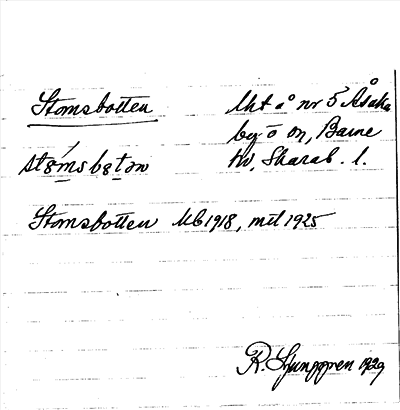 Stomsbotten
Ukt å nr 5 Åsaka
by o on, Barne
hd, Skarab. l.
Stomsbotten Ub 1918, mtl 1925
R. Ljunggren 1929